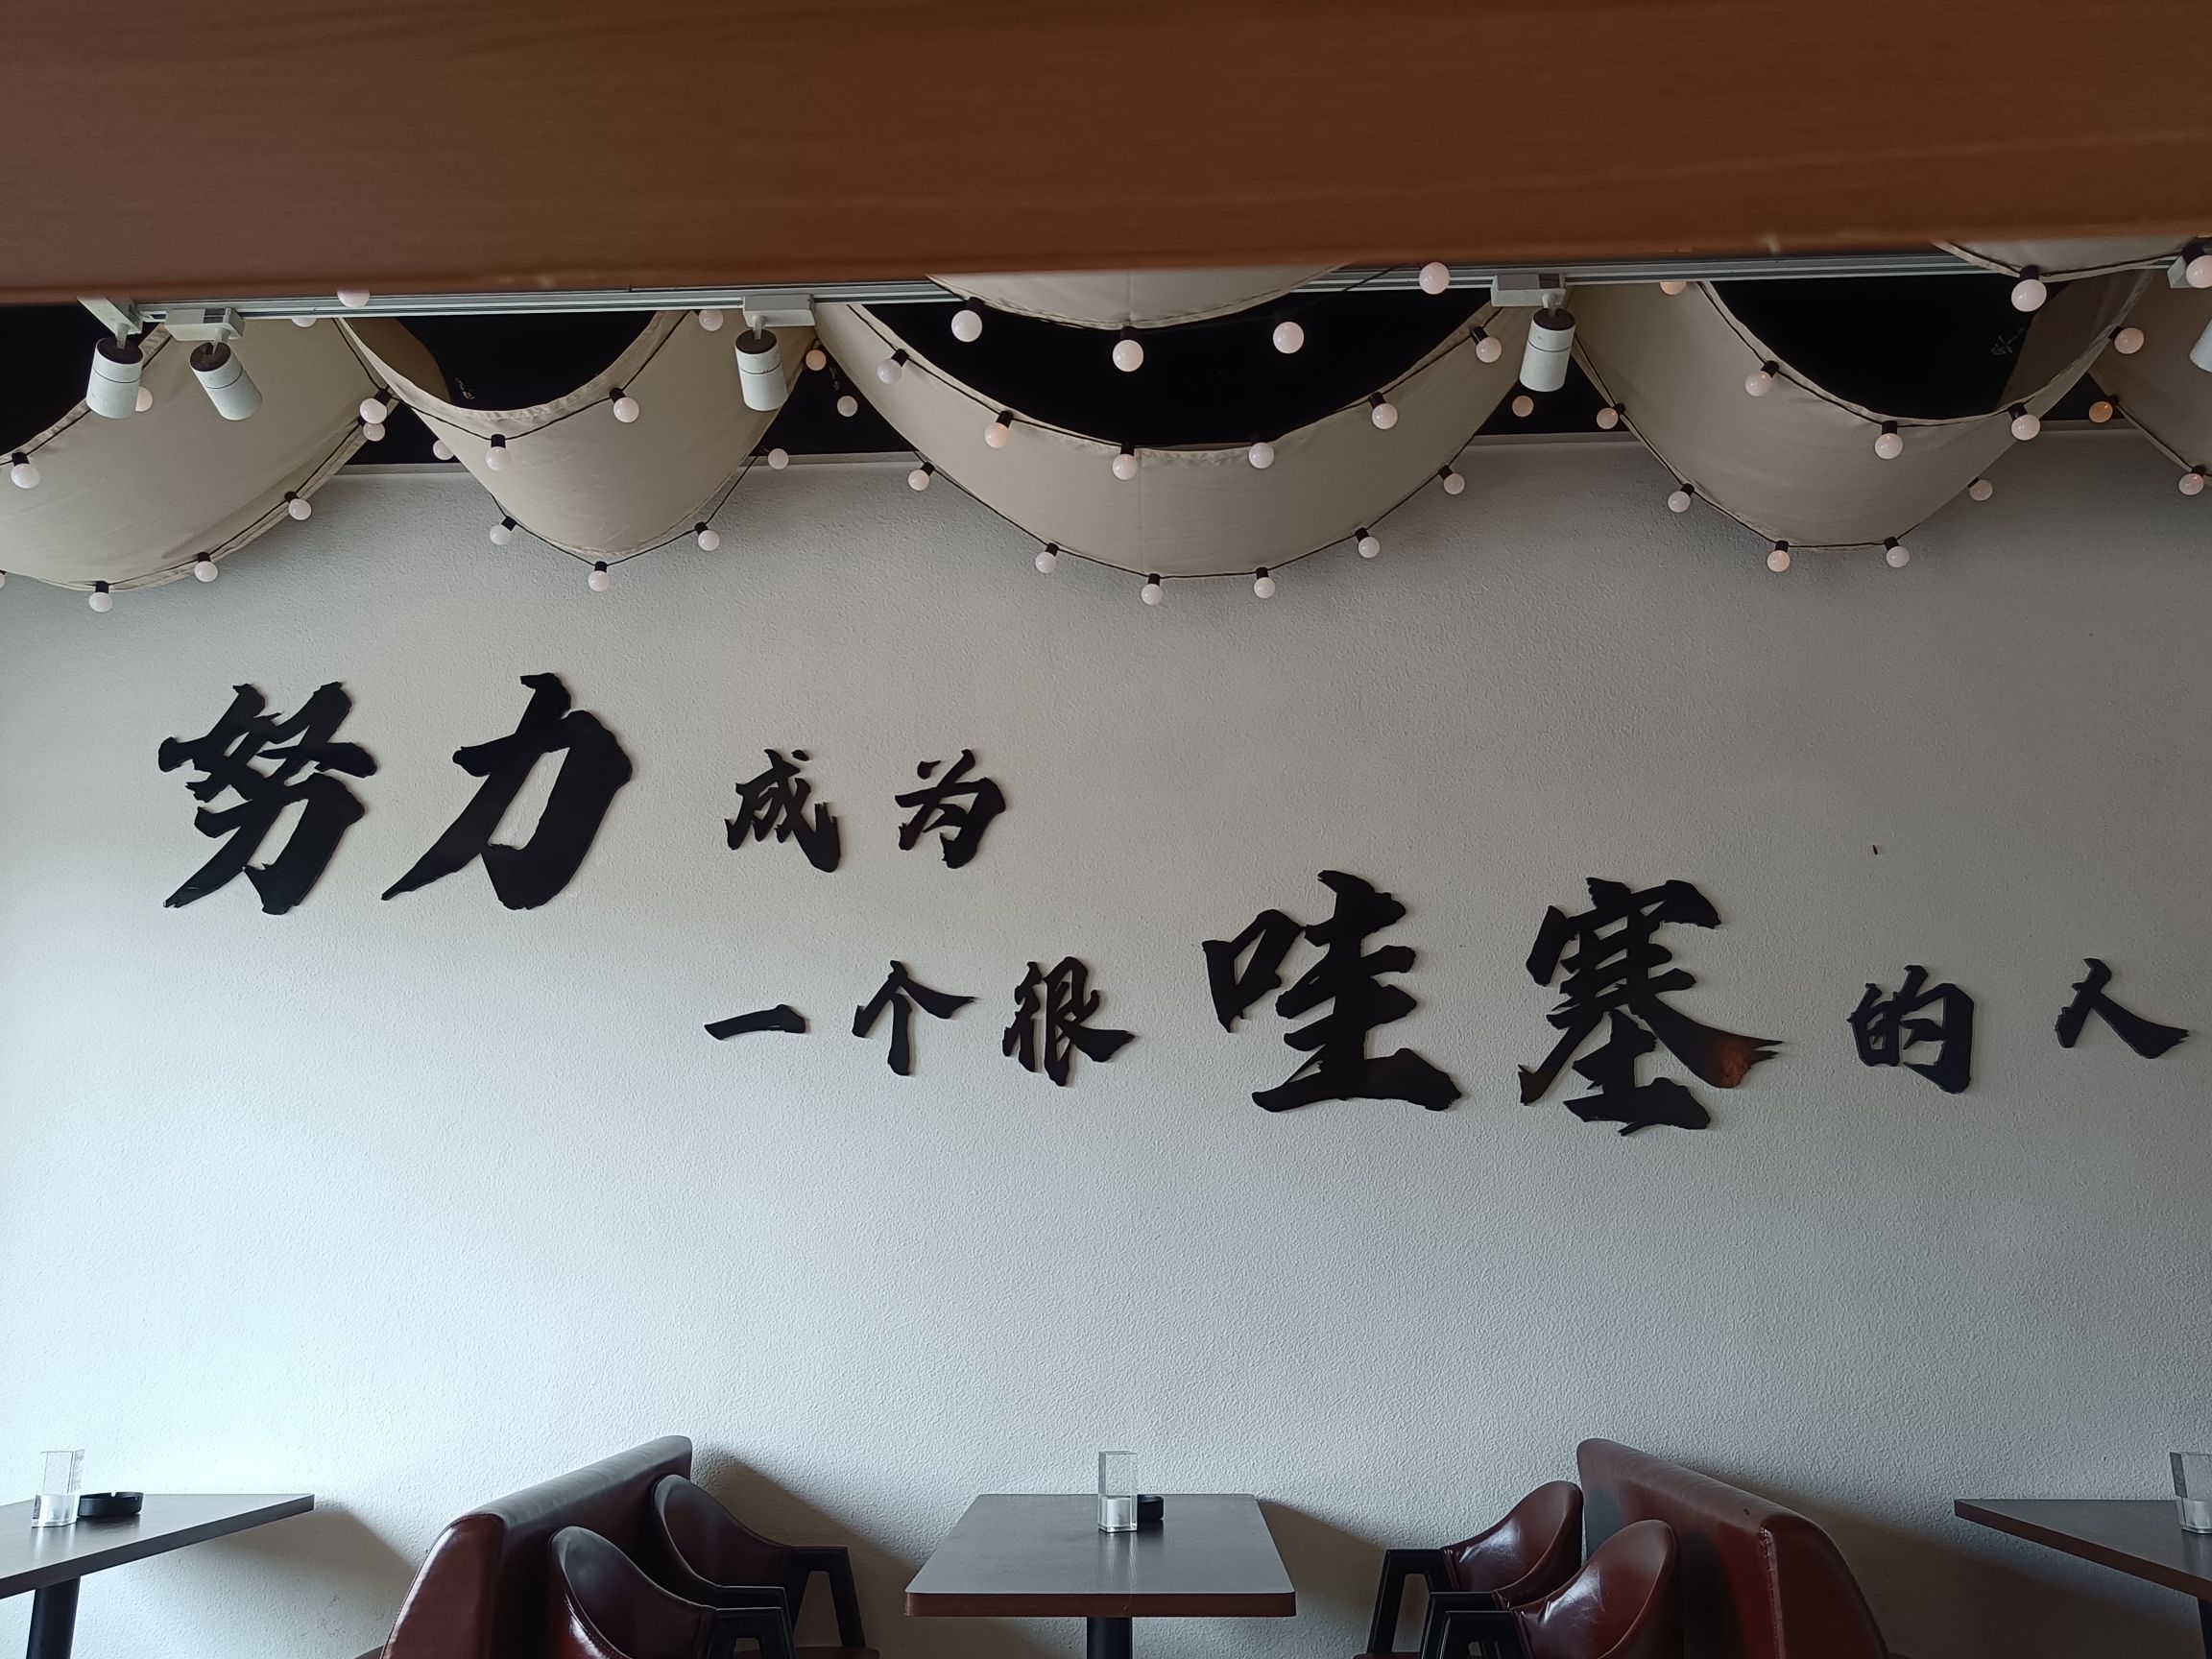 努力成为
一个很哇塞的人